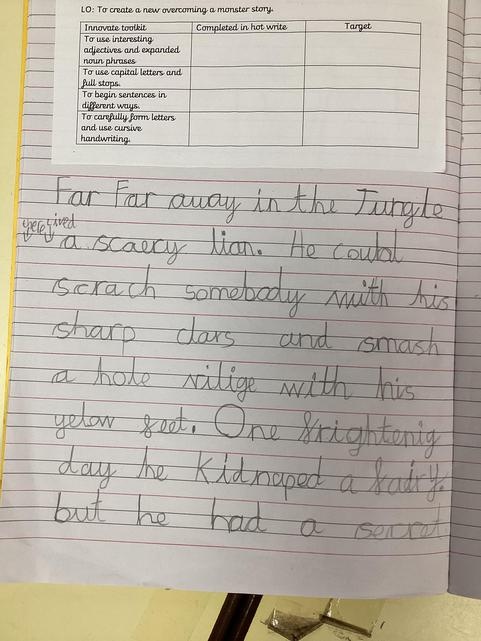 LO: To create a new overcoming a monster story.
Innovate toolkit Completed in hot write Target
To use interesting
adjectives and expanded
noun phrases
To use capital letters and
full stops.
To begin sentences in
different ways.
To carefully form letters
and use cursive
handwriting.
Far Far away in the Jungle
a scaery lian. He could
scrach somebody with his
sharp clars and smash
a hole vilige with his
yelow feet. One frightenig
day he kidnaped a fairy.
but he had a secret